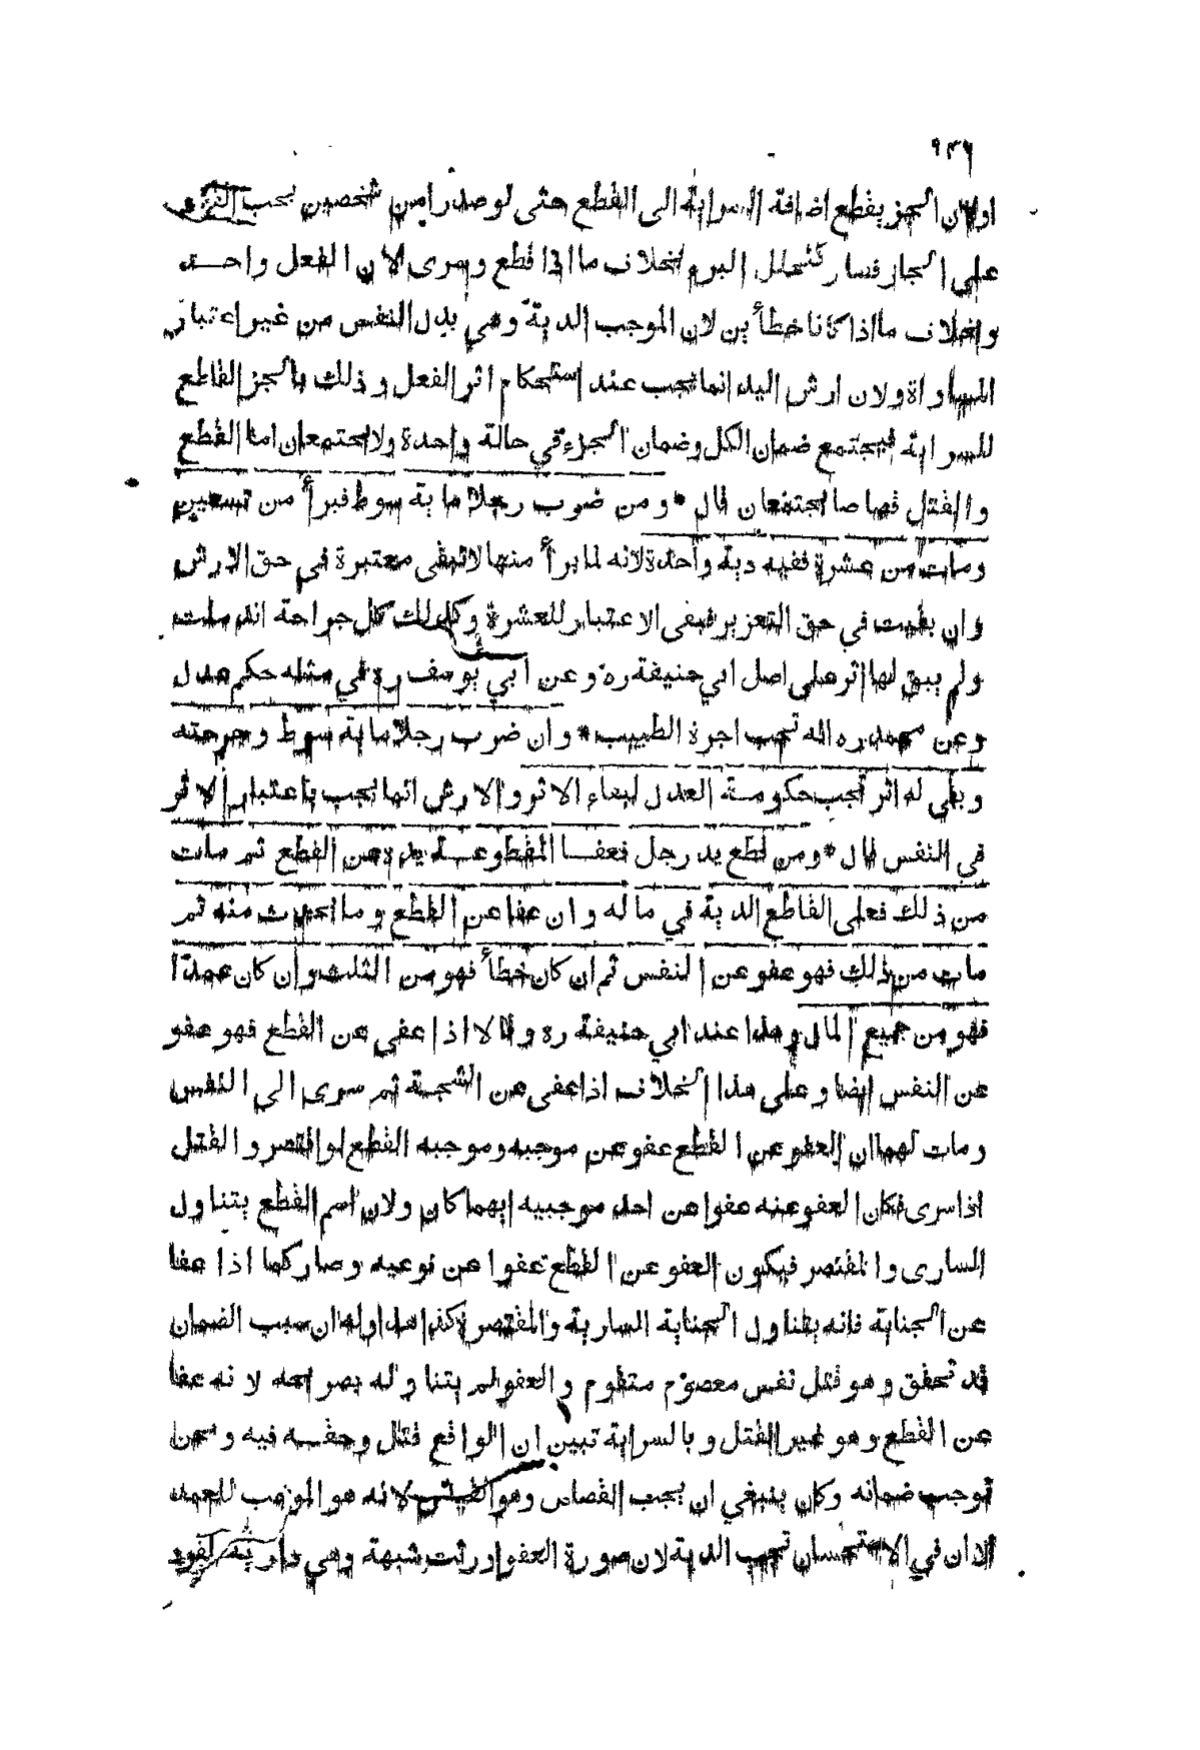 ٩٣٦
اولان الحز يقطع اضافة السراية الى القطع حتى لو صدرا من شخصين يجب القود
على الحاز فصار كتخلل البرء بخلاف ما اذا قطع وسرى لان الفعل واحد
وبخلاف ما اذا كانا خطأ ين لان الموجب الدية وهي بدل النفس من غير اعتبار
المساواة ولان ارش اليد انما تجب عند استحكام اثر الفعل وذلك بالحز القاطع
للسراية فيجتمع ضمان الكل وضمان الجزء في حالة واحدة ولا يجتمعان اما القطع
والقتل قصاصا يجتمعان قال * ومن ضرب رجلا ماية سوط فبرأ من تسعين
ومات من عشرة ففيه دية واحدة لانه لما برأ منها لا تبقى معتبرة في حق الارش
وان بقيت في حق التعزير فبقى الاعتبار للعشرة وكذلك كل جراحة اندملت
ولم يبق لها اثر على اصل ابي حنيفة ره وعن ابي يوسف ره في مثله حكم عدل
وعن محمد ره انه تجب اجرة الطبيب * وان ضرب رجلا ماية سوط وجرحته
وبقى له اثر تجب حكومة العدل لبقاء الاثر والارش انما يجب باعتبار الاثر
في النفس قال * ومن قطع يد رجل فعفا المقطوعة يده عن القطع ثم مات
من ذلك فعلى القاطع الدية في ماله وان عفا عن القطع وما يحدث منه ثم
مات من ذلك فهو عفو عن النفس ثم ان كان خطأ فهو من الثلث وان كان عمدا
فهو من جميع المال وهذا عند ابي حنيفة ره وقالا اذا عفى عن القطع فهو عفو
عن النفس ايضا وعلى هذا الخلاف اذا عفى عن الشجة ثم سرى الى النفس
ومات لهما ان العفو عن القطع عفو عن موجبه وموجبه القطع لو اقتصر والقتل
اذا سرى فكان العفو عنه عفوا عن احد موجبيه ايهما كان ولان اسم القطع يتناول
السارى والمقتصر فيكون العفو عن القطع عفوا عن نوعيه وصار كما اذا عفا
عن الجناية فانه يتناول الجناية السارية والمقتصرة كذا هذا وله ان سبب الضمان
قد تحقق وهو قتل نفس معصوم متقوم والعفو لم يتناوله بصريحه لانه عفا
عن القطع وهو غير القتل وبالسراية تبين ان الواقع قتل وحقه فيه ونحن
نوجب ضمانه وكان ينبغي ان يجب القصاص وهو القياس لانه هو الموجب للعمد
الا ان في الاستحسان تجب الدية لان صورة العفو اورثت شبهة وهي دارية للقود